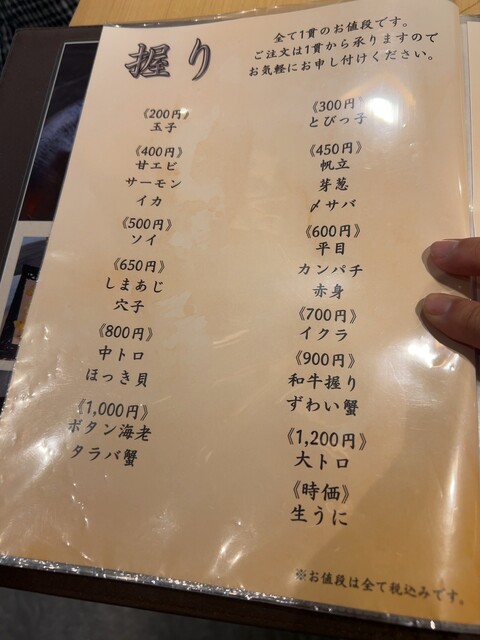 握り
全て1貫のお値段です。
ご注文は1貫から承りますので
お気軽にお申し付けください。
《200円》
玉子
《400円》
甘エビ
サーモン
イカ
《500円》
ソイ
《650円》
しまあじ
穴子
《800円》
中トロ
ほっき貝
《1,000円》
ボタン海老
タラバ蟹
《300円》
とびっ子
《450円》
帆立
芽葱
〆サバ
《600円》
平目
カンパチ
赤身
《700円》
イクラ
《900円》
和牛握り
ずわい蟹
《1,200円》
大トロ
《時価》
生うに
※お値段は全て税込みです。